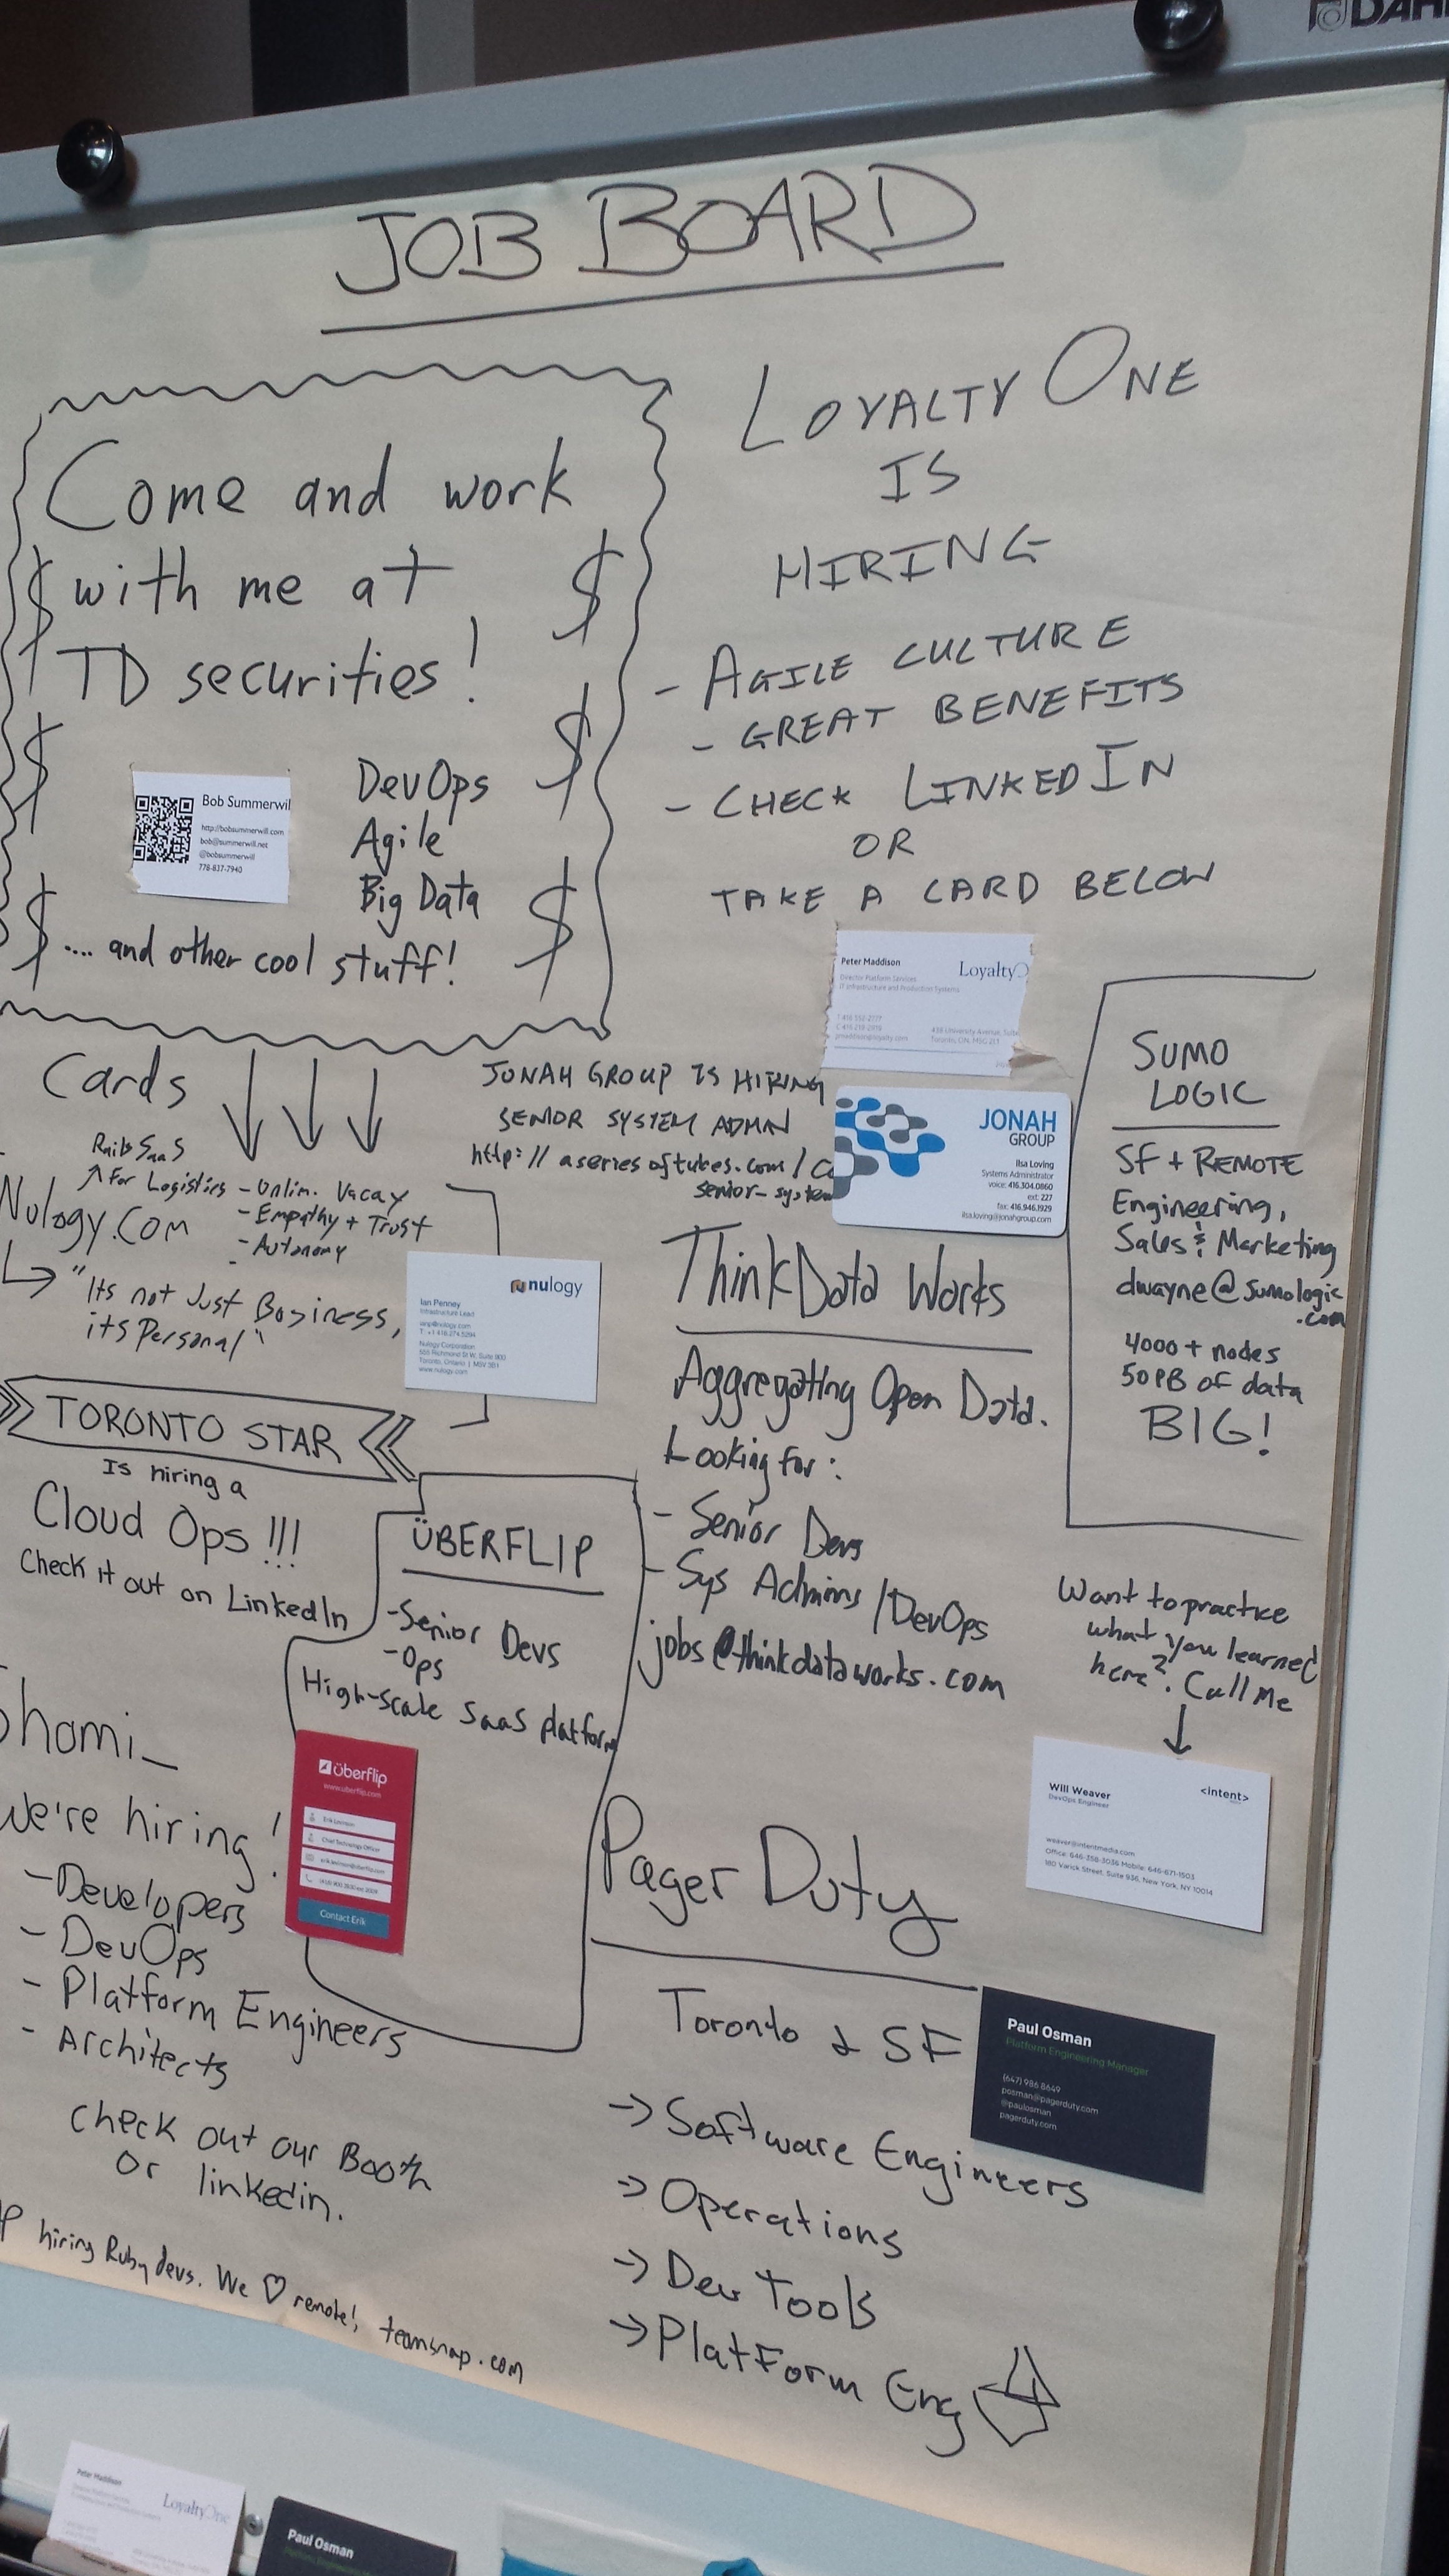 JOB BOARD
Come and work
with me at
TD securities!
DevOps
Agile
Big Data
.... and other cool stuff!
$
$
$
$
$
$
Bob Summerwil
http://bobsummerwill.com
bob@summerwill.net
@bobsummerwill
778-837-7940
LOYALTY ONE
IS
HIRING
- AGILE CULTURE
- GREAT BENEFITS
- CHECK LINKEDIN
OR
TAKE A CARD BELOW
Peter Maddison
Director Platform Services
IT Infrastructure and Production Systems
Loyalty
Cards
JONAH GROUP IS HIRING
SENIOR SYSTEM ADMIN
http://aseriesoftubes.com/ca
senior-system
JONAH
GROUP
Ilsa Loving
Systems Administrator
voice: 416.304.0860
ext: 227
fax: 416.946.1929
ilsa.loving@jonahgroup.com
SUMO
LOGIC
SF + REMOTE
Engineering,
Sales & Marketing
dwayne@sumologic
.com
4000+ nodes
50PB of data
BIG!
Rails SaaS
For Logistics
Nulogy.com
- Unlim. Vacay
- Empathy + Trust
- Autonomy
"Its not Just Business,
its Personal"
nulogy
Ian Penney
Infrastructure Lead
ianp@nulogy.com
T: +1 416.274.5294
Nulogy Corporation
555 Richmond St W, Suite 900
Toronto, Ontario | M5V 3B1
www.nulogy.com
ThinkData Works
Aggregating Open Data.
Looking for:
- Senior Devs
- Sys Admins/DevOps
jobs@thinkdataworks.com
TORONTO STAR
Is hiring a
Cloud Ops!!!
Check it out on LinkedIn
ÜBERFLIP
-Senior Devs
-Ops
High-scale SaaS platform
überflip
www.uberflip.com
Chief Technology Officer
Contact Erik
Want to practice
what you learned
here? Call Me
Will Weaver
DevOps Engineer
<intent>
weaver@intentmedia.com
Office: 646-358-3036 Mobile: 646-671-1503
180 Varick Street, Suite 936, New York, NY 10014
homi_
We're hiring!
-Developers
- DevOps
- Platform Engineers
- Architects
check out our Booth
or linkedin.
Pager Duty
Toronto & SF
Paul Osman
Platform Engineering Manager
(647) 986 8649
posman@pagerduty.com
@paulosman
pagerduty.com
-> Software Engineers
-> Operations
-> Dev Tools
-> PlatForm Eng
hiring Ruby devs. We ♡ remote! teamsnap.com
Peter Maddison
LoyaltyOne
Paul Osman